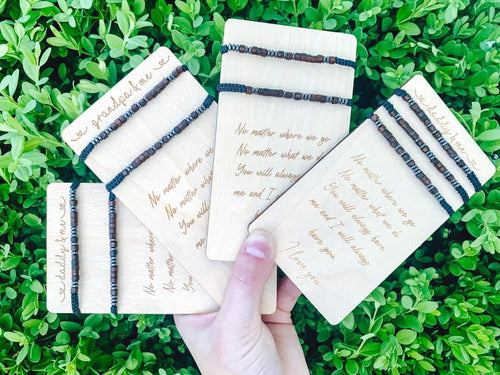 daddy & me
No matter
grandpa & me
No matter where
No matter
You will
No matter where we go
No matter what we do
You will always
me and I
daddy & me
No matter where we go
No matter what we do
You will always have
me and I will always
have you.
I love you.